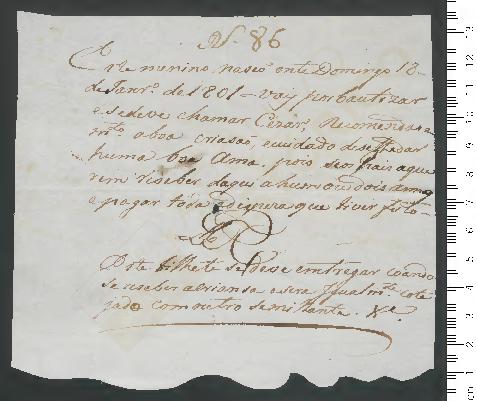 N. 86
Este menino naseo onte Domingo 18
de Janr.º de 1801 - vay por bautizar
e se deve chamar Cezar, Recomendase
m.to a boa criasaõ, e cuidado de se lhe dar
huma boa Ama, pois seos Pais a que
rem reseber daqui a hum ou dois annos
e pagar toda a dispeza que tiver feito
Este bilhete se deve entregar coando
se reseber a criansa e sera Igualm.te cote
jado com outro semilhante. &.ª